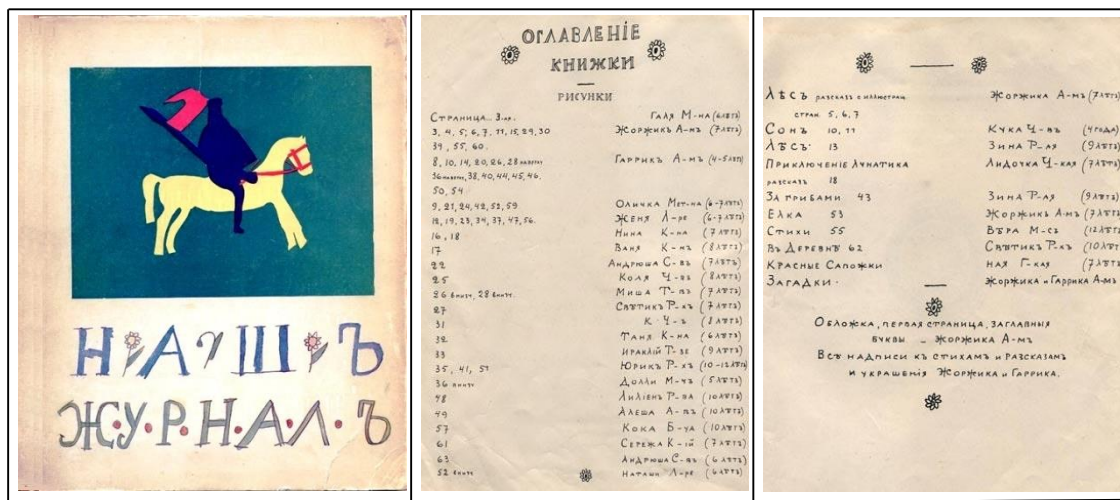 НАШЪ
ЖУРНАЛЪ
ОГЛАВЛЕНІЕ
КНИЖКИ
РИСУНКИ
СТРАНИЦА ГАЛЯ М-НА (6 ЛѢТЪ)
3, 4, 5, 6, 7, 11, 15, 29, 30 ЖОРЖИКЪ А-МЪ (7 ЛѢТЪ)
39, 55, 60.
8, 10, 14, 20, 26, 28 ГАРРИКЪ А-МЪ (4-5 ЛѢТЪ)
36 38, 40, 44, 45, 46.
50, 54
9, 21, 24, 42, 52, 59 ОЛИЧКА МЕТ-НА (6-7 ЛѢТЪ)
12, 19, 23, 34, 37, 47, 56. ЖЕНЯ Л-РЕ (6-7 ЛѢТЪ)
16, 18 НИНА К-НА (7 ЛѢТЪ)
17 ВАНЯ К-НЪ (8 ЛѢТЪ)
22 АНДРЮША С-ВЪ (7 ЛѢТЪ)
25 КОЛЯ Ч-ВЪ (8 ЛѢТЪ)
26 ВНИЗУ, 28 ВНИЗУ. МИША Т-ВЪ (7 ЛѢТЪ)
27 СВѢТИКЪ Р-ХЪ (7 ЛѢТЪ)
31 К Ч-Ъ (8 ЛѢТЪ)
32 ТАНЯ К-НА (6 ЛѢТЪ)
33 ИРАКЛІЙ Т-ЗЕ (9 ЛѢТЪ)
35, 41, 51 ЮРИКЪ Р-ХЪ (10-12 ЛѢТЪ)
36 ВНИЗУ ДОЛЛИ М-ЧЪ (5 ЛѢТЪ)
48 ЛИЛІЕНЪ Р-ВА (10 ЛѢТЪ)
49 АЛЕША А-ВЪ (10 ЛѢТЪ)
57 КОКА Б-УА (10 ЛѢТЪ)
61 СЕРЕЖА К-ІЙ (7 ЛѢТЪ)
63 АНДРЮША С-ВЪ (6 ЛѢТЪ)
52 ВНИЗУ Л-РЕ (6 ЛѢТЪ)
ЛѢСЪ РАЗСКАЗЪ С ИЛЛЮСТРАЦ. ЖОРЖИКА А-МЪ (7 ЛѢТЪ)
СТРАН. 5, 6, 7
СОНЪ 10, 11 КУКА Ч-ВЪ (4 ГОДА)
ЛѢСЪ. 13 ЗИНА Р-ЛЯ (9 ЛѢТЪ)
ПРИКЛЮЧЕНІЕ ЛУНАТИКА ЛИДОЧКА Ч-КАЯ (7 ЛѢТЪ)
РАЗСКАЗЪ 18
ЗА ГРИБАМИ 43 ЗИНА Р-АЯ (9 ЛѢТЪ)
ЕЛКА 53 ЖОРЖИКА А-МЪ (7 ЛѢТЪ)
СТИХИ 55 ВѢРА М-СЪ (12 ЛѢТЪ)
ВЪ ДЕРЕВНѢ 62 СВѢТИКЪ Р-ХЪ (10 ЛѢТЪ)
КРАСНЫЕ САПОЖКИ НАЯ Г-КАЯ (7 ЛѢТЪ)
ЗАГАДКИ. — ЖОРЖИКА И ГАРРИКА А-МЪ
ОБЛОЖКА, ПЕРВАЯ СТРАНИЦА, ЗАГЛАВНЫЯ
БУКВЫ – ЖОРЖИКА А-МЪ
ВСѢ НАДПИСИ КЪ СТИХАМЪ И РАЗСКАЗАМЪ
И УКРАШЕНІЯ ЖОРЖИКА И ГАРРИКА.